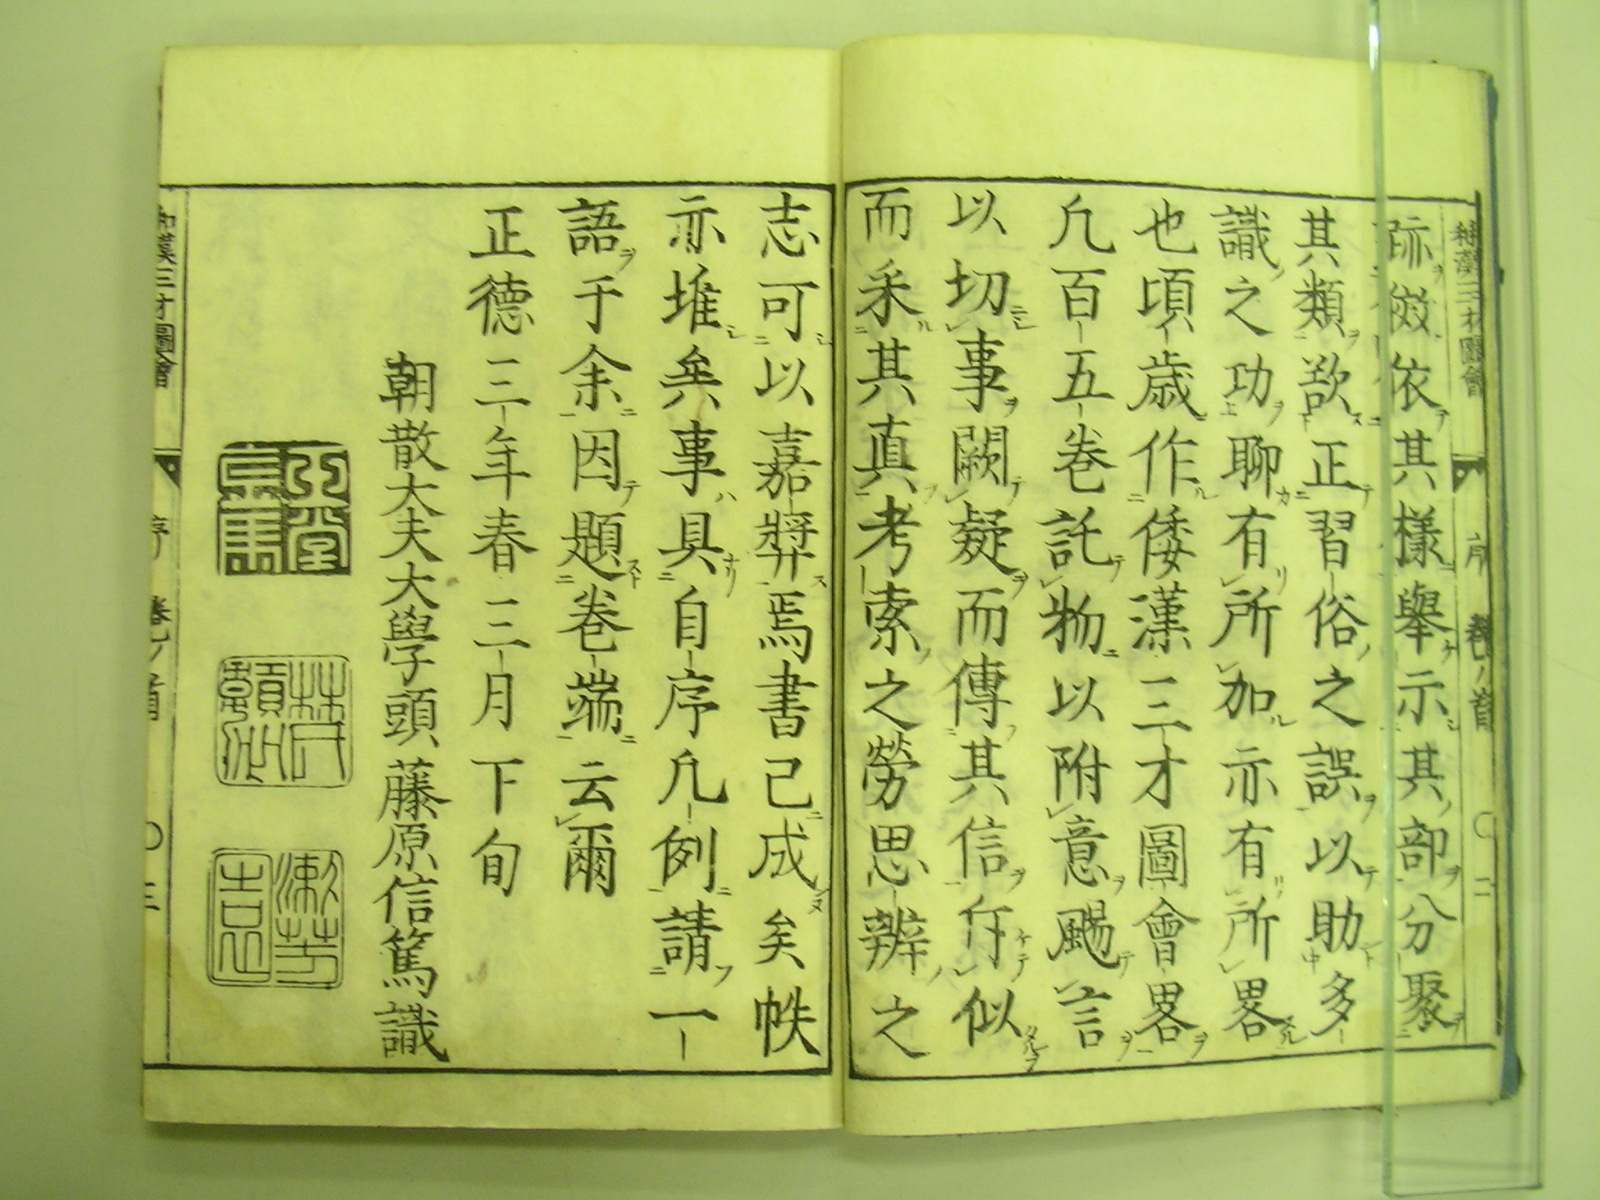 和漢三才圖會 序 卷ノ首 〇二
跡傚依其樣舉示其部分聚
其類欲正習俗之誤以助多
識之功聊有所加亦有所畧
也頃歳作倭漢三才圖會畧
凢百五卷託物以附意颺言
以切事闕疑而傳其信斥似
而采其真考索之勞思辨之
志可以嘉奬焉書已成矣帙
亦堆矣事具自序凢例請一
語于余因題卷端云爾
正德三年春三月下旬
朝散大夫大學頭藤原信篤識
和漢三才圖會 序 卷ノ首 〇三